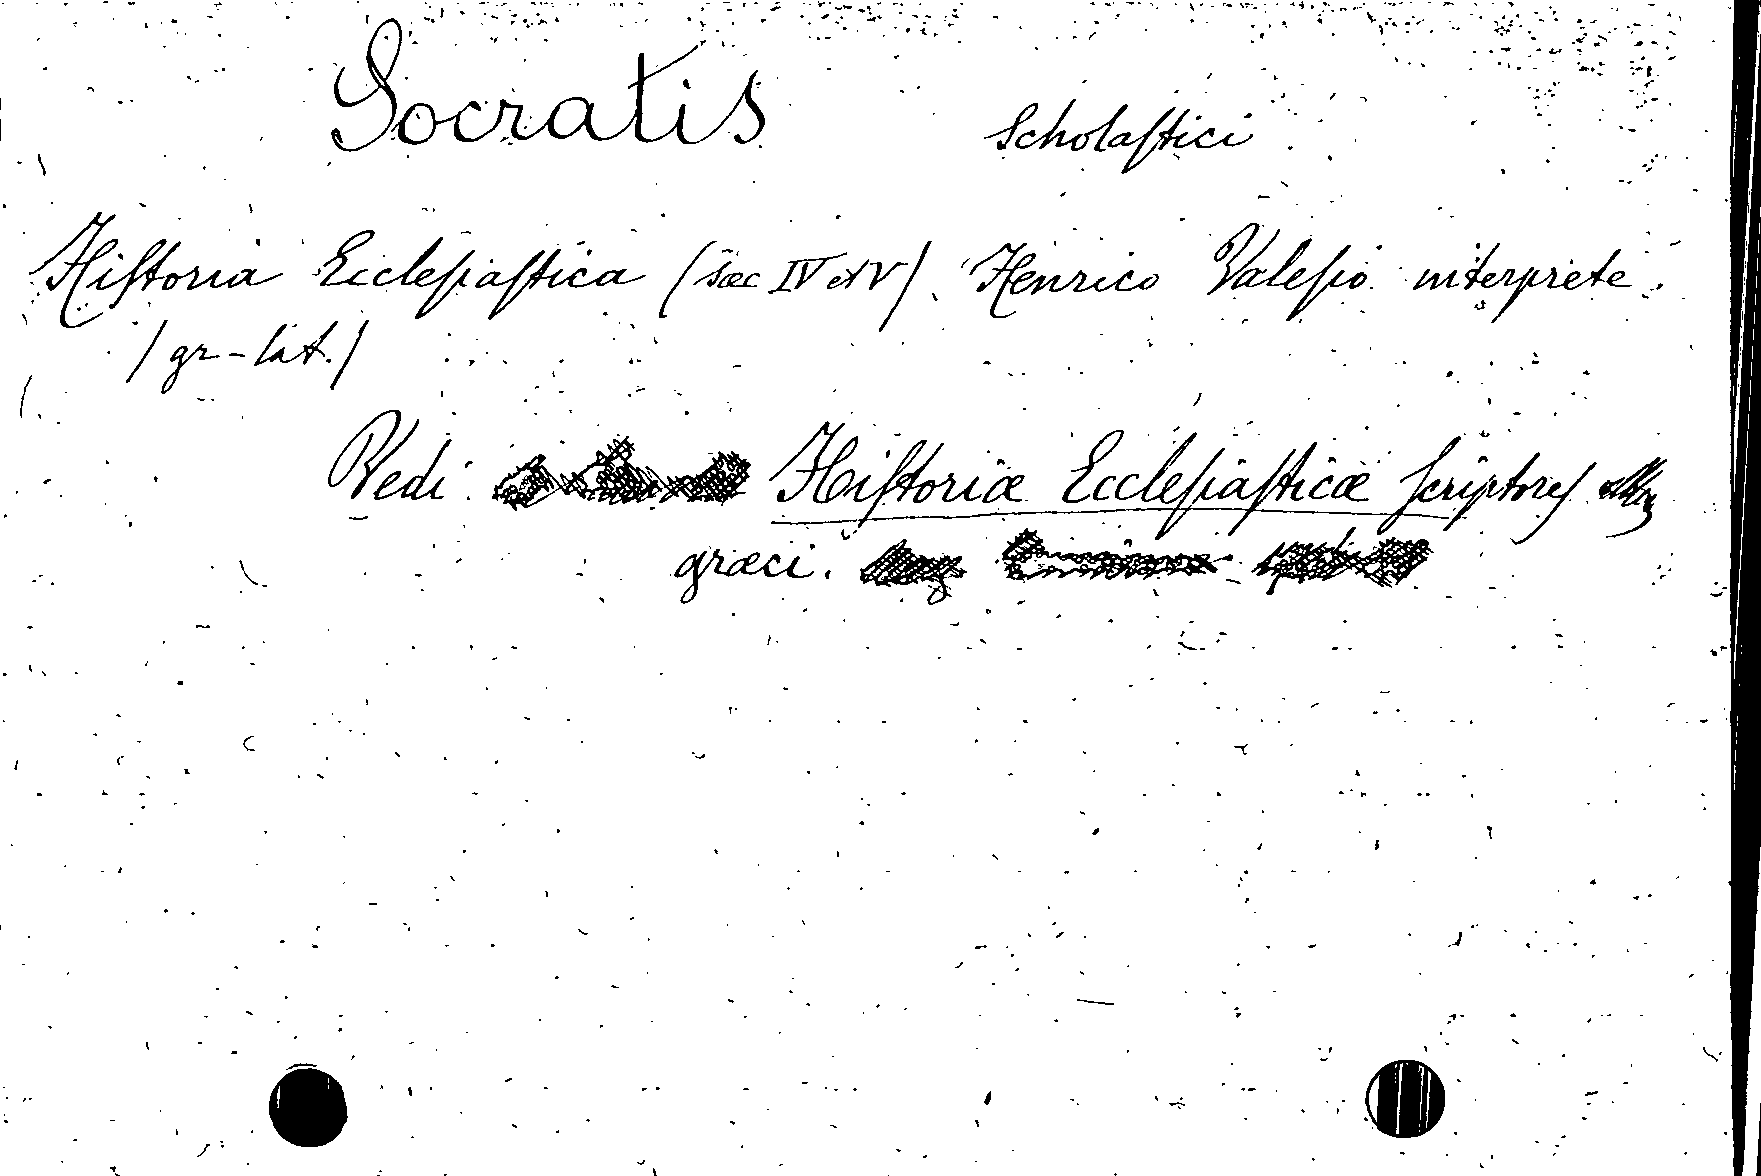 Socratis Scholaſtici
Hiſtoria Eccleſiaſtica (sæc IV et V). Henrico Valeſio interprete.
(gr-lat.)
Vedi Hiſtoriæ Eccleſiaſticæ ſcriptoreſ
græci.